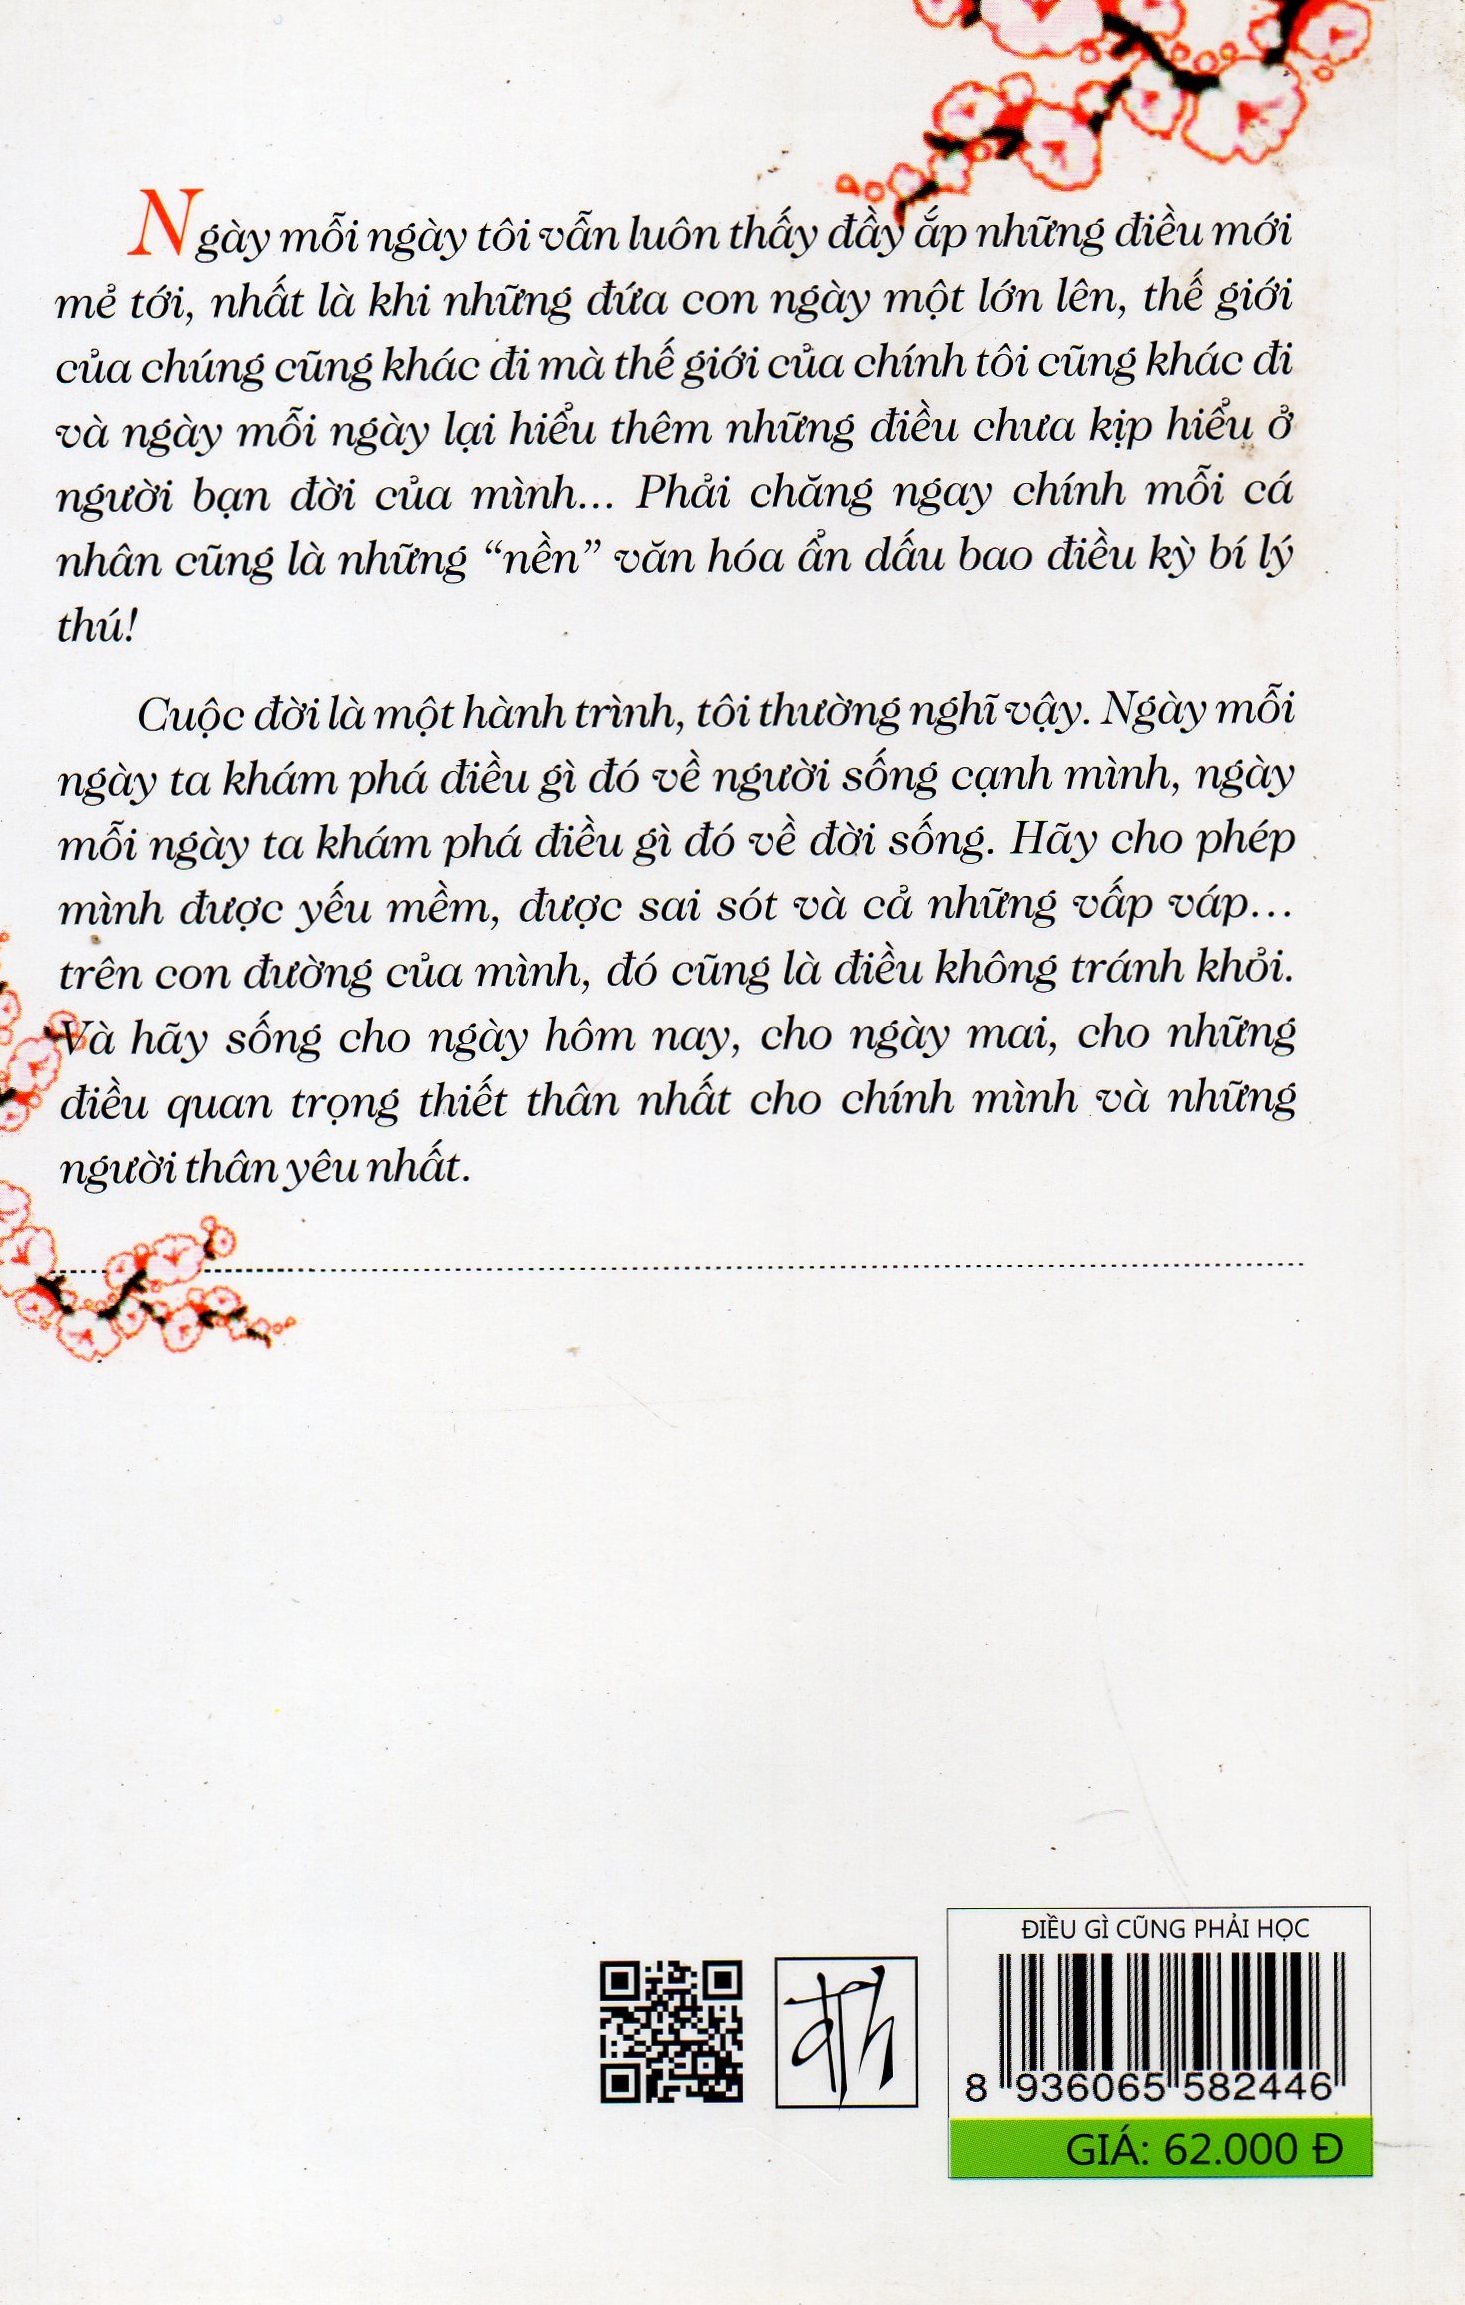 Ngày mỗi ngày tôi vẫn luôn thấy đầy ắp những điều mới
mẻ tới, nhất là khi những đứa con ngày một lớn lên, thế giới
của chúng cũng khác đi mà thế giới của chính tôi cũng khác đi
và ngày mỗi ngày lại hiểu thêm những điều chưa kịp hiểu ở
người bạn đời của mình... Phải chăng ngay chính mỗi cá
nhân cũng là những “nền” văn hóa ẩn dấu bao điều kỳ bí lý
thú!
Cuộc đời là một hành trình, tôi thường nghĩ vậy. Ngày mỗi
ngày ta khám phá điều gì đó về người sống cạnh mình, ngày
mỗi ngày ta khám phá điều gì đó về đời sống. Hãy cho phép
mình được yếu mềm, được sai sót và cả những vấp váp...
trên con đường của mình, đó cũng là điều không tránh khỏi.
Và hãy sống cho ngày hôm nay, cho ngày mai, cho những
điều quan trọng thiết thân nhất cho chính mình và những
người thân yêu nhất.
ĐIỀU GÌ CŨNG PHẢI HỌC
8 936065 582446
GIÁ: 62.000 Đ